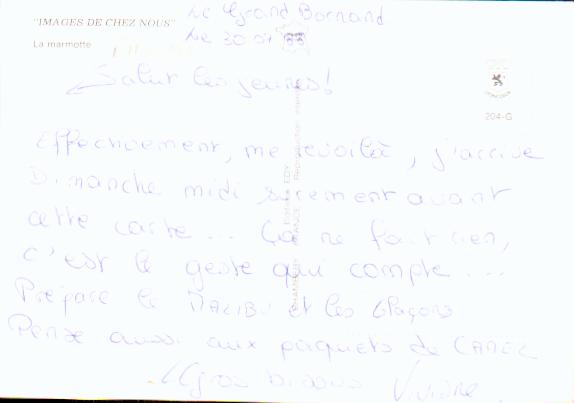 "IMAGES DE CHEZ NOUS"
La marmotte
Le Grand Bornand
Le 30 07 88
204-G
Salut les jeunes!
Effectivement, me revoilà, j'arrive
Dimanche midi surement avant
cette carte... Ça ne fait rien,
c'est le geste qui compte....
Prépare le MALIBU et les Glaçons
Pense aussi aux paquets de CAMEL
Gros Bisous Viviane
Editions EDY